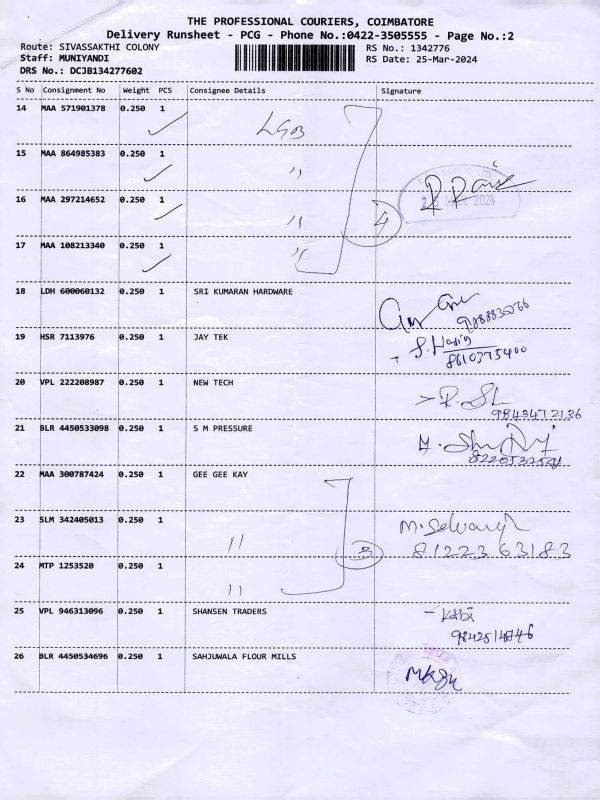 THE PROFESSIONAL COURIERS, COIMBATORE
Delivery Runsheet - PCG - Phone No.:0422-3505555 - Page No.:2
Route: SIVASSAKTHI COLONY RS No.: 1342776
Staff: MUNIYANDI RS Date: 25-Mar-2024
DRS No.: DCJB134277602
S No Consignment No Weight PCS Consignee Details Signature
14 MAA 571901378 0.250 1 LGB
15 MAA 864985383 0.250 1 "
16 MAA 297214652 0.250 1 "
4
2024
17 MAA 108213340 0.250 1 "
18 LDH 600060132 0.250 1 SRI KUMARAN HARDWARE
19 HSR 7113976 0.250 1 JAY TEK
8610375400
20 VPL 222208987 0.250 1 NEW TECH
9843472136
21 BLR 4450533098 0.250 1 S M PRESSURE
22 MAA 300787424 0.250 1 GEE GEE KAY
23 SLM 342405013 0.250 1 "
81223 63183
3
24 MTP 1253520 0.250 1 "
25 VPL 946313096 0.250 1 SHANSEN TRADERS
26 BLR 4450534696 0.250 1 SAHJUWALA FLOUR MILLS